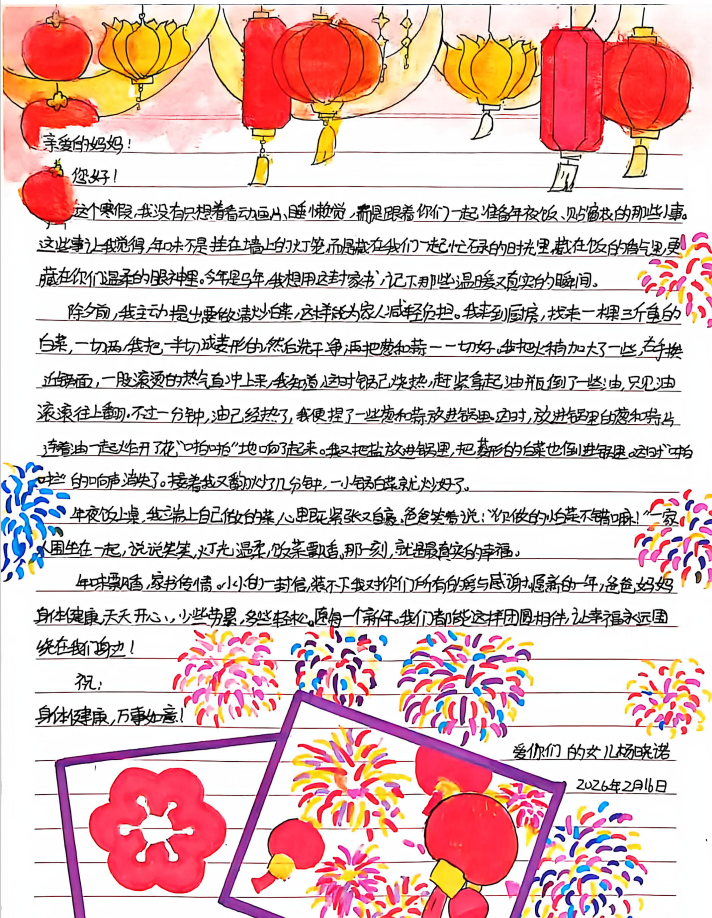 亲爱的妈妈！
您好！
这个寒假，我没有只想着看动画片、睡懒觉，而是跟着你们一起准备年夜饭、贴窗花的那些小事。
这些事让我觉得，年味不是挂在墙上的灯笼，而是藏在我们一起忙碌的时光里，藏在饭的香气里，更
藏在你们温柔的眼神里。今年是马年，我想用这封家书，记下那些温暖又真实的瞬间。
除夕前，我主动提出要做清炒白菜，这样能为家人减轻负担。我来到厨房，找来一棵三斤重的
白菜，一切两，我把一半切成菱形的，然后洗干净，再把葱和蒜一一切好。我把火稍加大了一些，在手换
近锅面，一股滚烫的热气直冲上来，我知道，这时锅已烧热，赶紧拿起油瓶倒了一些油，只见油
滚滚往上翻。不过一分钟，油已经热了，我便捏了一些葱和蒜放进锅里。这时，放进锅里的葱和蒜片
连着油一起炸开了花“啪啪”地响了起来。我又把盐放进锅里，把菱形的白菜也倒进锅里。这时“啪
啦”的响声消失了。接着我又翻炒了几分钟，一小锅白菜就炒好了。
年夜饭上桌，我端上自己做的菜，心里既紧张又自豪。爸爸笑着说：“你做的小白菜不错嘛！”一家
人围坐在一起，说说笑笑，灯光温柔，饭菜飘香，那一刻，就是最真实的幸福。
年味飘香，家书传情。小小的一封信，装不下我对你们所有的爱与感谢。愿新的一年，爸爸，妈妈
身体健康，天天开心，少些劳累，多些轻松。愿每一个新年。我们都能这样团圆相伴，让幸福永远围
绕在我们身边！
祝：
身体健康，万事如意！
爱你们的女儿杨晓诺
2026年2月16日